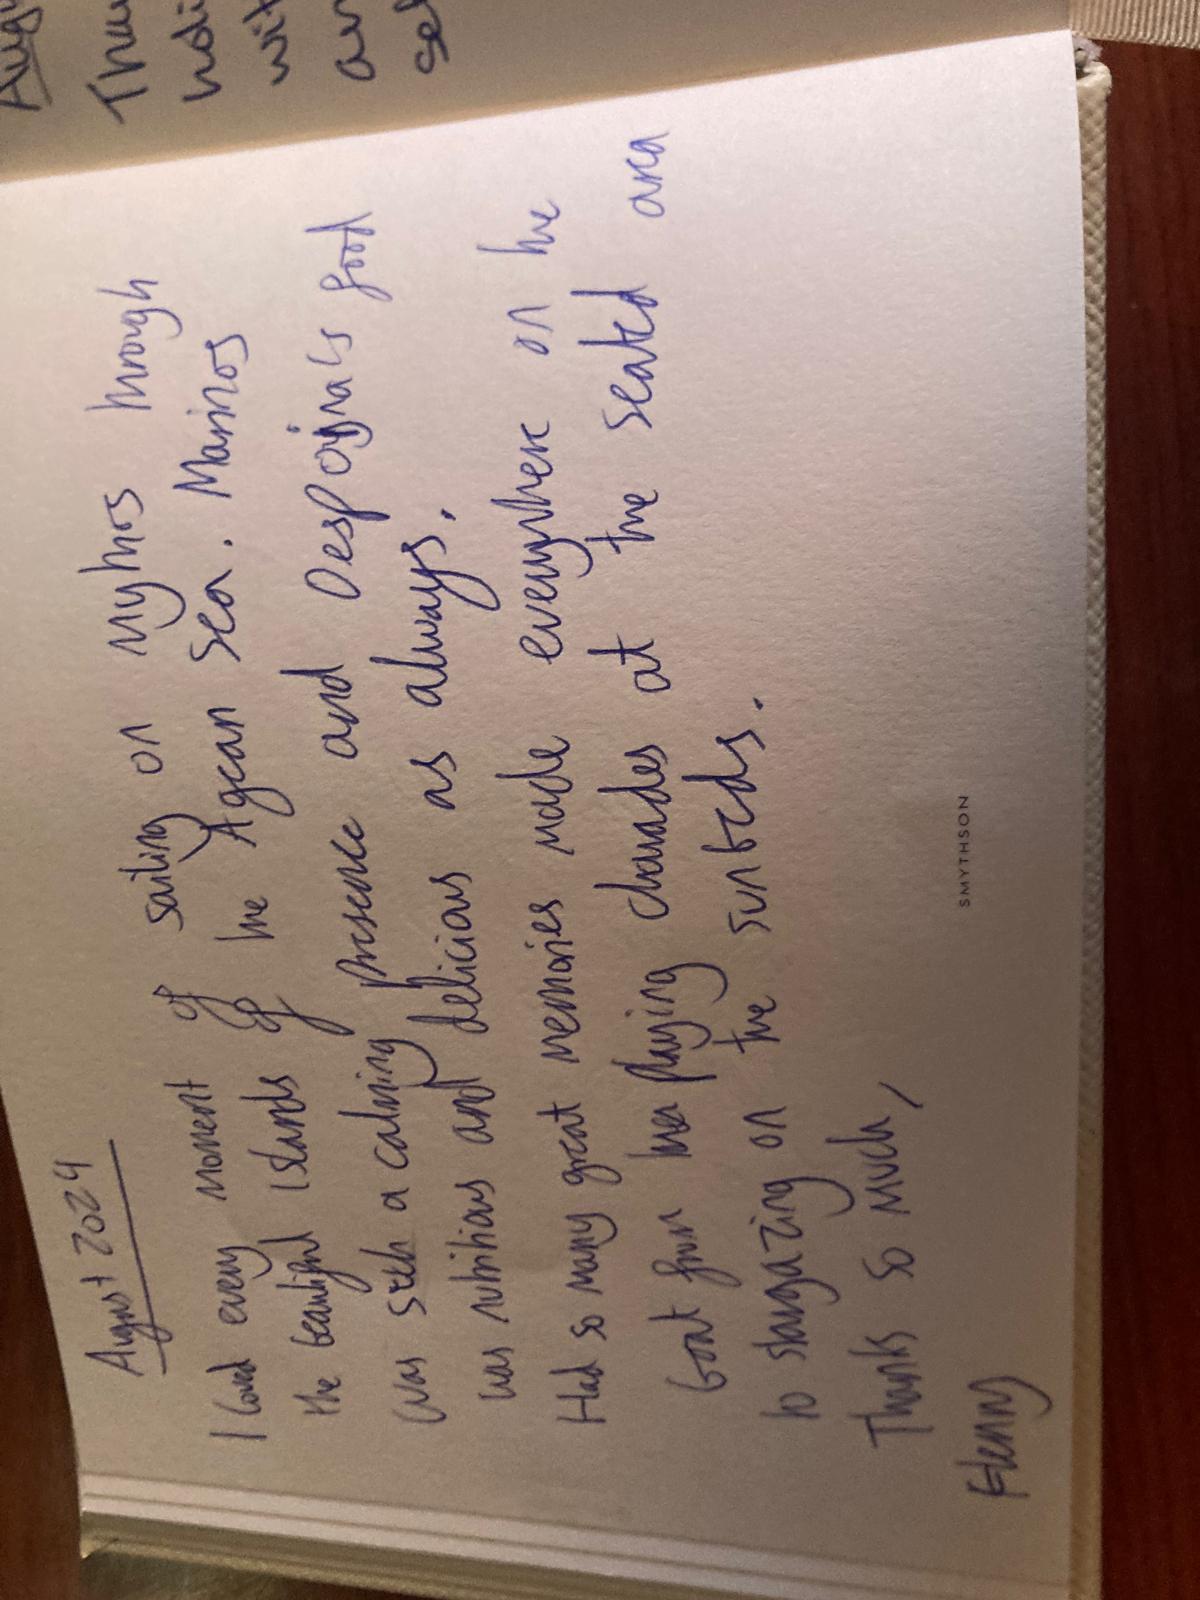 August 2024
I loved every moment of sailing on Mythos through
the beautiful islands of the Agean Sea. Marinos
was such a calming presence and Despoina's food
was nutritious and delicious as always.
Had so many great memories made everywhere on the
boat from playing charades at the seated area
to stargazing on the sunbeds.
Thanks so much,
Henny
SMYTHSON